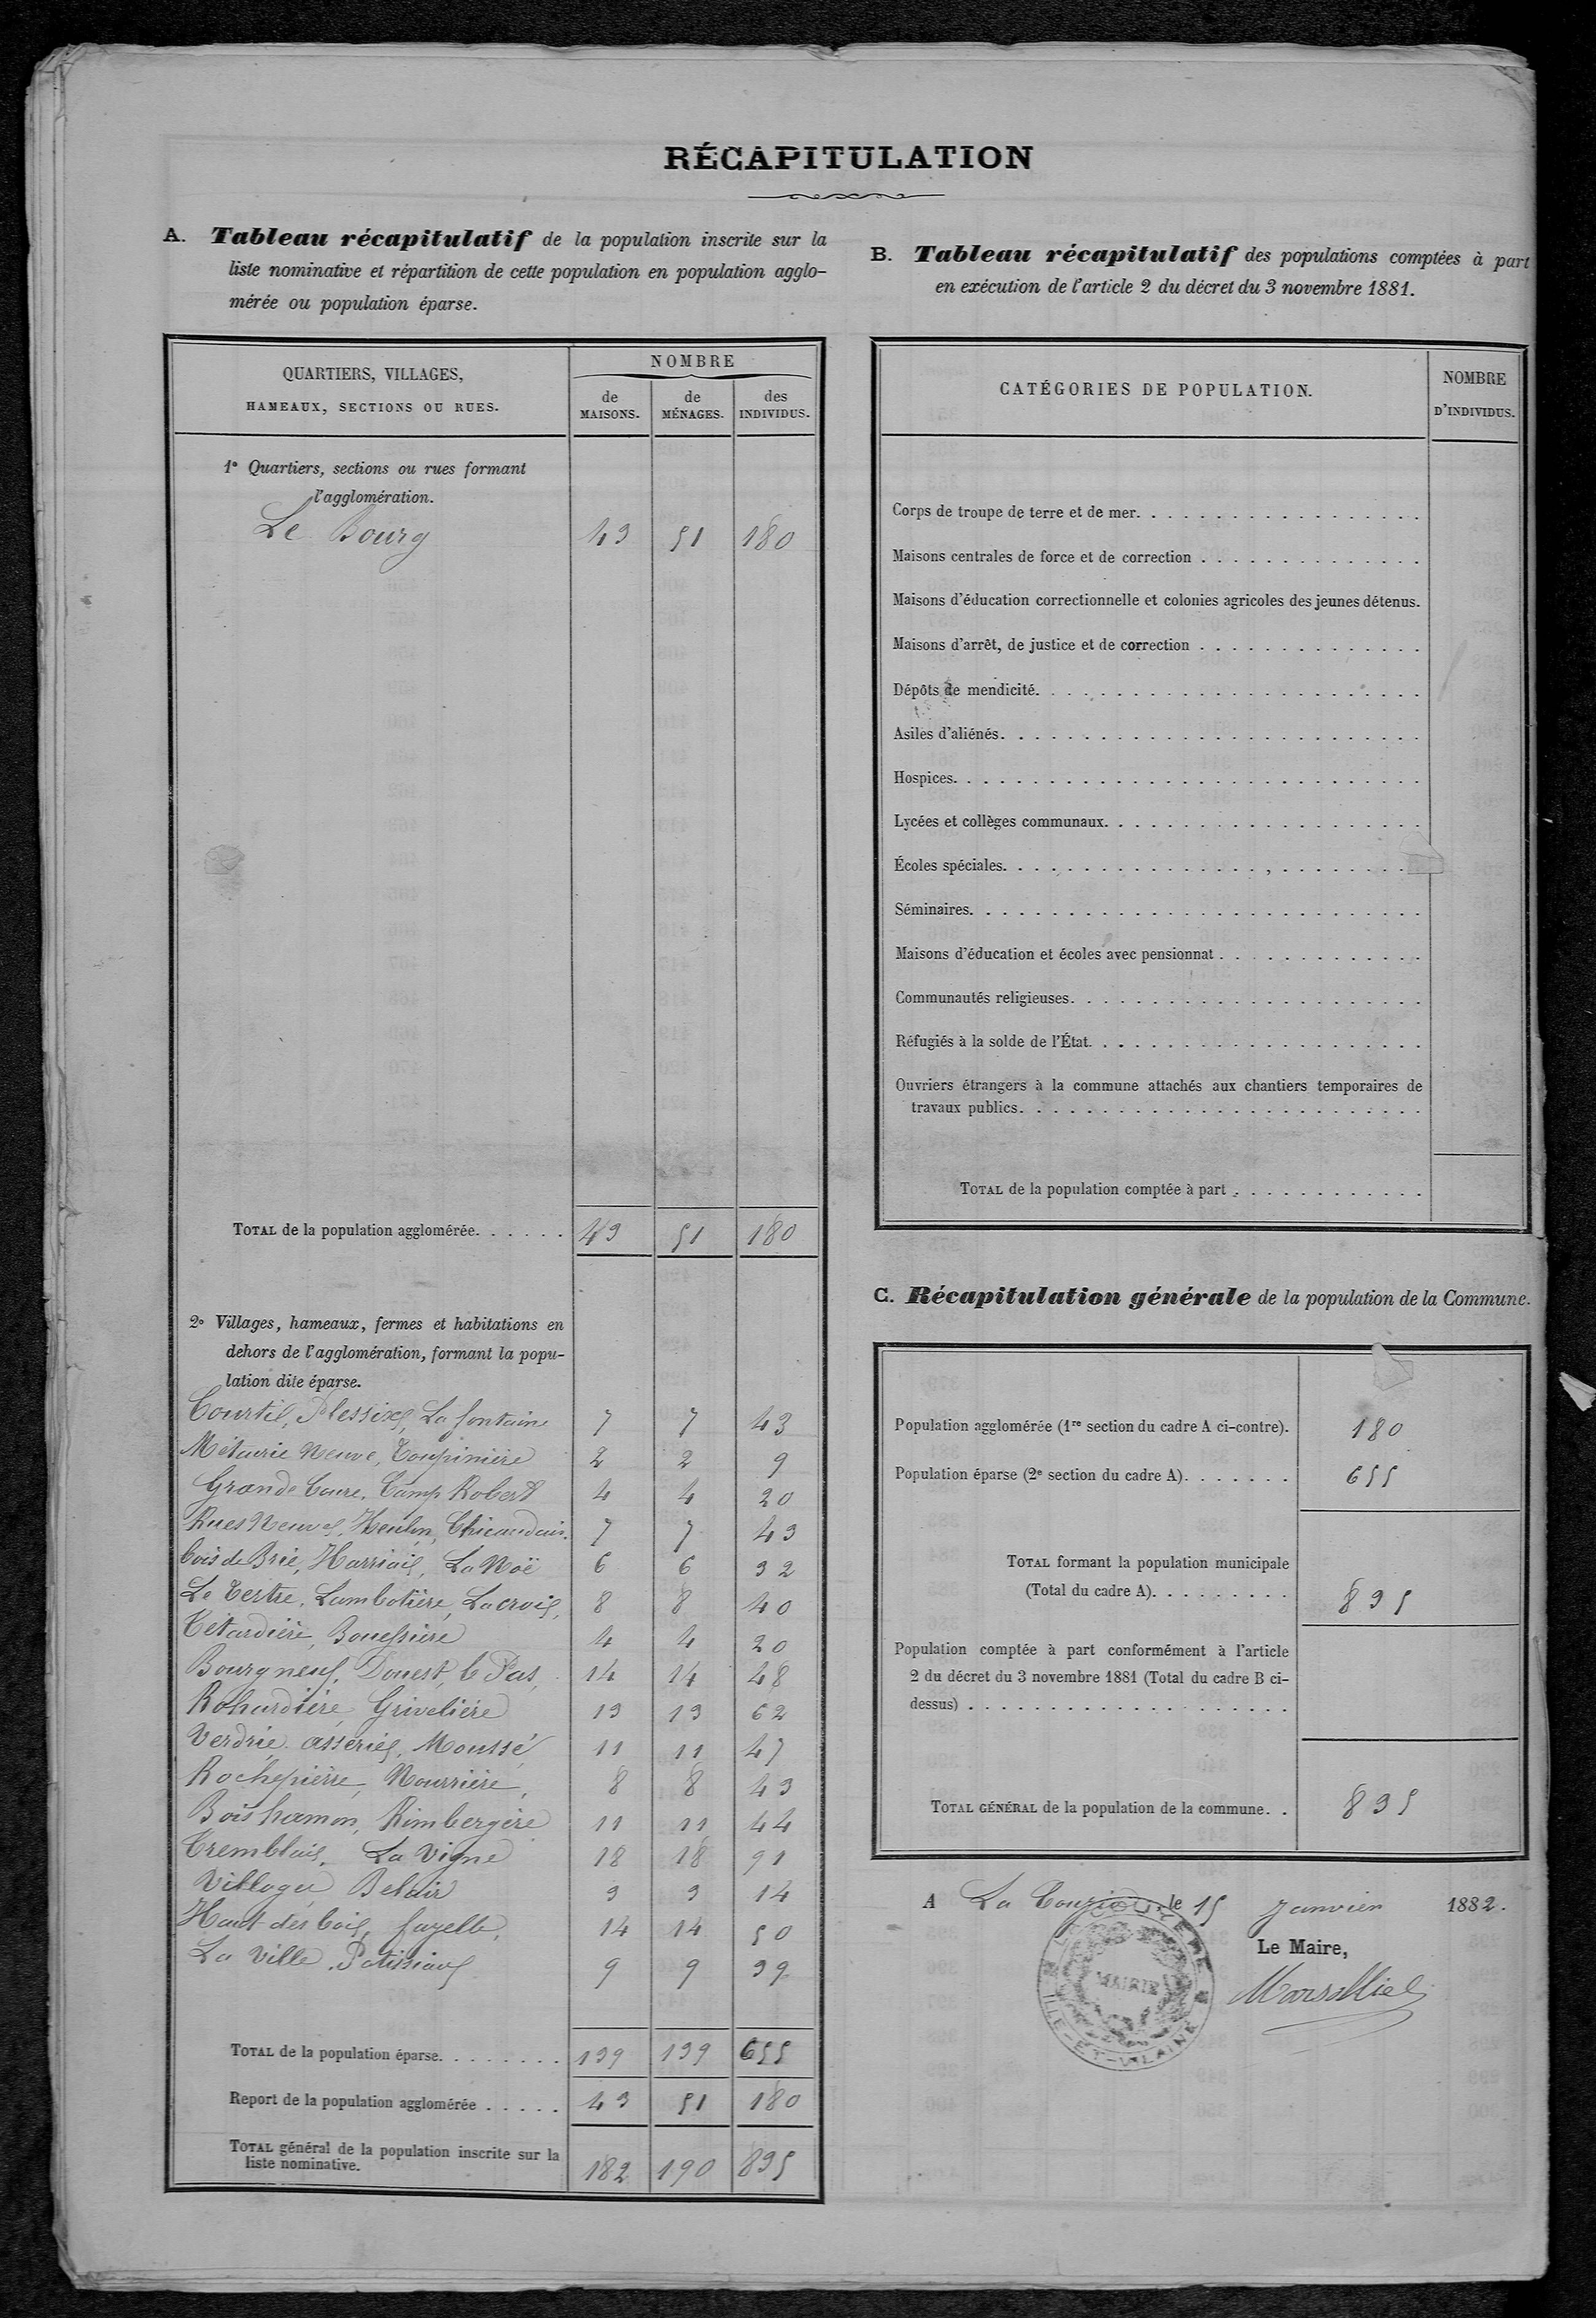 RÉCAPITULATION
A. Tableau récapitulatif de la population inscrite sur la
liste nominative et répartition de cette population en population agglo-
mérée ou population éparse.
QUARTIERS, VILLAGES,
HAMEAUX, SECTIONS OU RUES.
NOMBRE
de MAISONS.
de MÉNAGES.
des INDIVIDUS.
1° Quartiers, sections ou rues formant
l'agglomération.
Le Bourg 43 51 180
TOTAL de la population agglomérée. 43 51 180
2° Villages, hameaux, fermes et habitations en
dehors de l'agglomération, formant la popu-
lation dite éparse.
Courtil, Plessix, La fontaine 7 7 43
Métairie Neuve, Toupinière 2 2 9
Grande Camp Robert 4 4 20
Rues Neuves, Heulin, 7 7 43
bois de Brie, Harriais, La Noë 6 6 32
Le Tertre, Lambotière, Lacroix, 8 8 40
Tetardière, Bouessière 4 4 20
Bourgneuf, Douest, le Pas, 14 14 48
Rohardière Grivelière 13 13 62
Verdrie asseries, Moussé 11 11 47
Rochepierre, Nourrière, 8 8 43
Bois hamon, Rimbergère 11 11 44
Tremblais, La Vigne 18 18 91
Villages Belair 3 3 14
Haut des bois, fazelle, 14 14 50
La Ville, 9 9 39
TOTAL de la population éparse. 139 139 655
Report de la population agglomérée 43 51 180
TOTAL général de la population inscrite sur la
liste nominative. 182 190 835
B. Tableau récapitulatif des populations comptées à part
en exécution de l'article 2 du décret du 3 novembre 1881.
CATÉGORIES DE POPULATION.
NOMBRE
D'INDIVIDUS.
Corps de troupe de terre et de mer.
Maisons centrales de force et de correction
Maisons d'éducation correctionnelle et colonies agricoles des jeunes détenus.
Maisons d'arrêt, de justice et de correction
Dépôts de mendicité.
Asiles d'aliénés.
Hospices.
Lycées et collèges communaux.
Écoles spéciales.
Séminaires.
Maisons d'éducation et écoles avec pensionnat
Communautés religieuses.
Réfugiés à la solde de l'État.
Ouvriers étrangers à la commune attachés aux chantiers temporaires de
travaux publics.
TOTAL de la population comptée à part
C. Récapitulation générale de la population de la Commune.
Population agglomérée (1re section du cadre A ci-contre). 180
Population éparse (2e section du cadre A). 655
TOTAL formant la population municipale
(Total du cadre A). 835
Population comptée à part conformément à l'article
2 du décret du 3 novembre 1881 (Total du cadre B ci-
dessus)
TOTAL GÉNÉRAL de la population de la commune. 835
A La le 15 Janvier 1882.
Le Maire,
MAIRIE
ILLE-ET-VILAINE